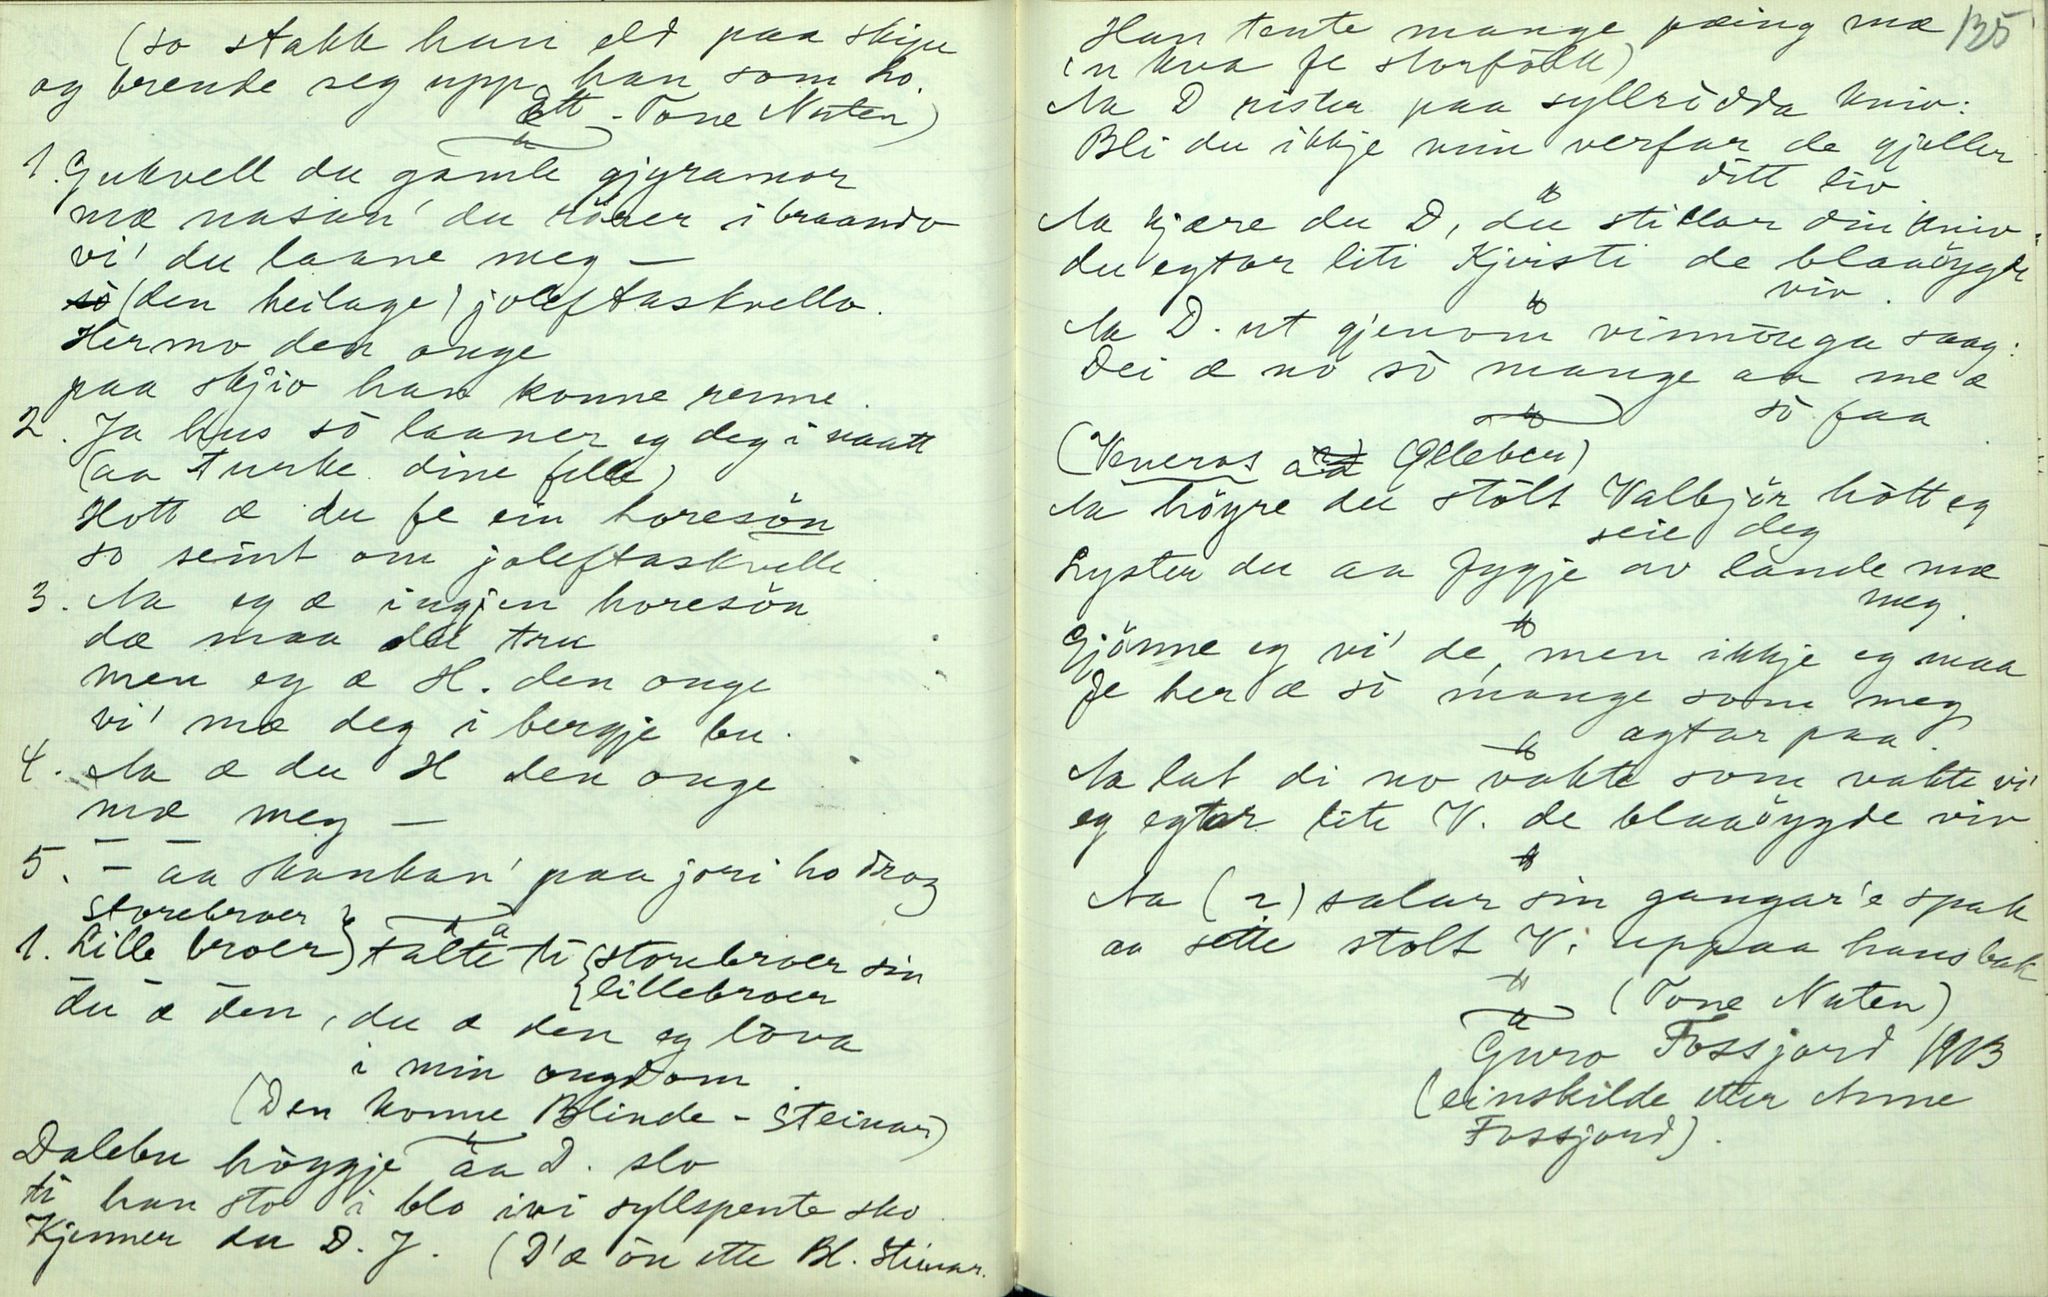 (so stakk han eld paa skipe
og brende seg upp, han som ho.
Ett - Tone Nuten)
1. Gukvell du gamle gjyramor
mæ nasan' du rörer i braando
vi' du laane meg —
(den heilage) joleftaskvello.
Hermo den onge
paa skjio han konne renne.
2. Ja hus sò laaner eg deg i naatt
(aa turke dine fille)
Hott æ du fe ein horesön
so seint om joleftaskvelle
3. Aa eg æ ingjen horesön
dæ maa du tru
men eg æ H. den onge
vi' mæ deg i bergje bu.
4. Aa æ du H den onge
mæ meg —
5. — aa skankan' paa jori ho drog
Storebroer
1. Lille broer} talte ti {storebroer sin
{lillebroer
du æ den, du æ den eg lova
i min ongdom.
(Den konne Blinde-Steinar)
Dalebu höggje aa D. slo
ti han sto i blo ivi syllspente sko.
Kjenner du D. J. (D'æ ön ette Bl. Steinar.
135
Han tente mange pæing mæ
in kva fe storfòlk)
Aa D rister paa syllridda kniv:
Bli du ikkje min verfar de gjeller
ditt liv
Aa kjære du D, du stillar din kniv
du egtar liti Kjersti de blaaöygde
viv.
Aa D. ut gjenom vinnöuga saag:
Dei æ no sò mange aa me æ
sò faa
(Veneros (Olleber)
Aa höyre du stòlt Valbjör hòtt eg
seie deg
Lyster du aa fygje av lande mæ
meg.
Gjönne eg vi' de, men ikkje eg maa
fe her æ sò mange som meg
agtar paa.
Aa lat di no vakte som vakte vi'
eg egtar lite V. de blaaöygde viv
Aa (2) salar sin gangar'e spak
aa sette stolt V. uppaa hans bak
(Tone Nuten)
Guro Fossjord 1913
(einskilde etter Anne
Fossjord).